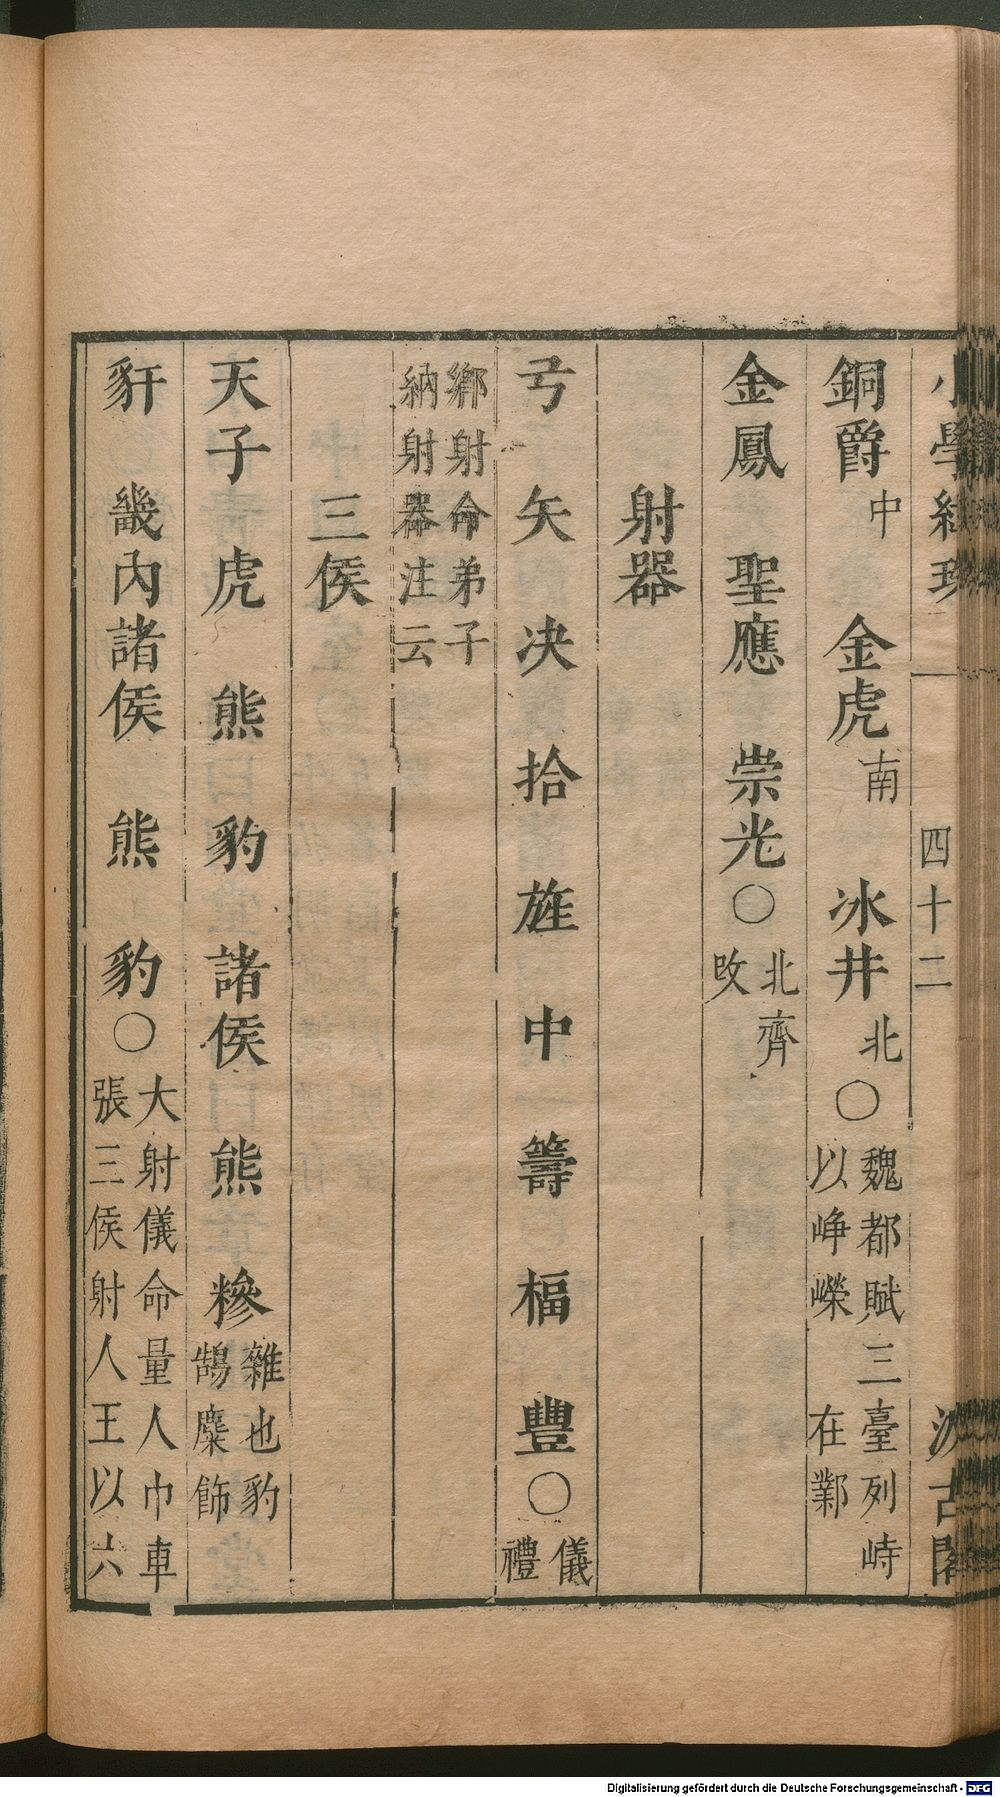 小學紺珠 四十二 汲古閣
銅爵中 金虎南 冰井北○魏都賦三臺列峙以崢嶸在鄴
金鳳 聖應 崇光○北齊改
射器
弓 矢 决 拾 旌 中 籌 楅 豐○儀禮
鄉射命弟子納射器注云
三侯
天子虎 熊 豹 諸侯 熊 糝雜也豹鵠麋飾
豻 畿內諸侯 熊 豹○大射儀命量人巾車張三侯射人王以六
Digitalisierung gefördert durch die Deutsche Forschungsgemeinschaft - DFG